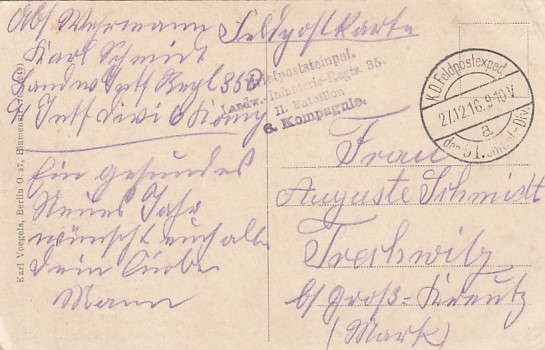 Abs Wehrmann Feldpostkarte
Karl Schmidt
Landw Inft Regt 35
Inft Divi
Briefpoststempel.
Landw.-Infanterie-Regts. 35.
II. Bataillon
6. Kompagnie.
K.D. Feldpostexped.
27.12.16. 9-10 V
a
der
Ein gesundes
Neues Jahr
wünscht euch alle
Dein Liebe
Mann
Frau
Auguste Schmidt
Treshwitz
b/ Groß-Kreutz
(Mark)
Karl Voegels, Berlin O 27, Blumenstr.